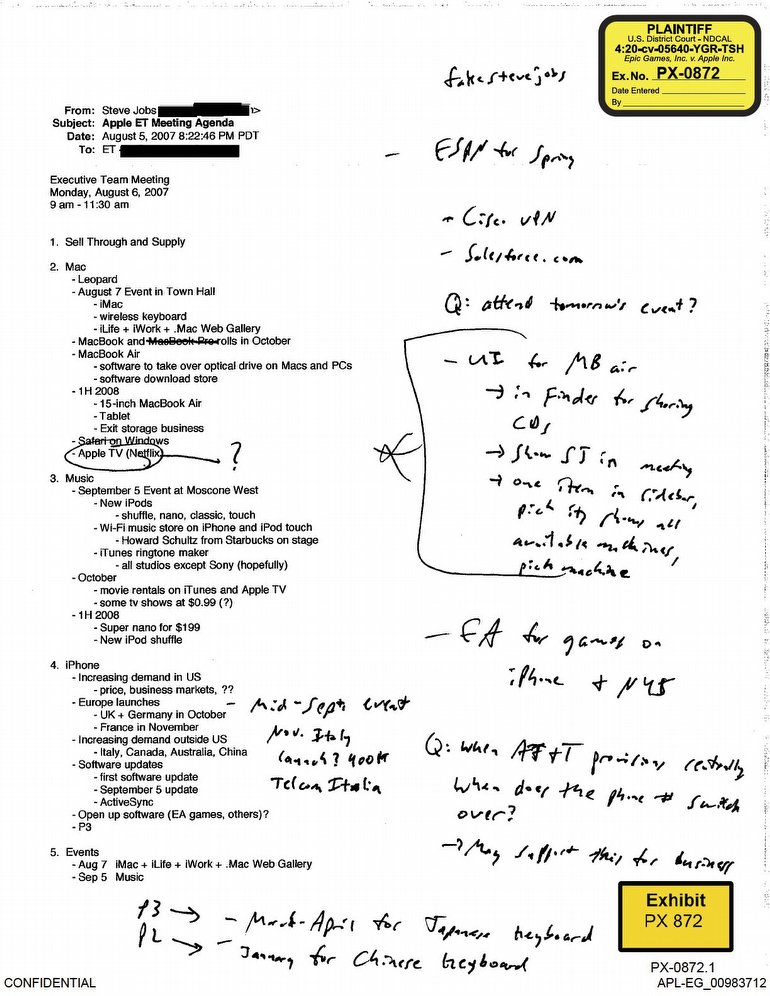 fakestevejobs
PLAINTIFF
U.S. District Court - NDCAL
4:20-cv-05640-YGR-TSH
Epic Games, Inc. v. Apple Inc.
Ex. No. PX-0872
Date Entered
By
From: Steve Jobs
Subject: Apple ET Meeting Agenda
Date: August 5, 2007 8:22:46 PM PDT
To: ET
Executive Team Meeting
Monday, August 6, 2007
9 am - 11:30 am
1. Sell Through and Supply
2. Mac
- Leopard
- August 7 Event in Town Hall
- iMac
- wireless keyboard
- iLife + iWork + .Mac Web Gallery
- MacBook and MacBook Pro rolls in October
- MacBook Air
- software to take over optical drive on Macs and PCs
- software download store
- 1H 2008
- 15-inch MacBook Air
- Tablet
- Exit storage business
- Safari on Windows
- Apple TV (Netflix) ?
3. Music
- September 5 Event at Moscone West
- New iPods
- shuffle, nano, classic, touch
- Wi-Fi music store on iPhone and iPod touch
- Howard Schultz from Starbucks on stage
- iTunes ringtone maker
- all studios except Sony (hopefully)
- October
- movie rentals on iTunes and Apple TV
- some tv shows at $0.99 (?)
- 1H 2008
- Super nano for $199
- New iPod shuffle
4. iPhone
- Increasing demand in US
- price, business markets, ??
- Europe launches
- UK + Germany in October
- France in November
- Increasing demand outside US
- Italy, Canada, Australia, China
- Software updates
- first software update
- September 5 update
- ActiveSync
- Open up software (EA games, others)?
- P3
5. Events
- Aug 7 iMac + iLife + iWork + .Mac Web Gallery
- Sep 5 Music
- ESPN for Spring
- Cisco VPN
- Salesforce.com
Q: attend tomorrow's event?
- UI for MB air
→ in Finder for sharing
CDs
→ Show SJ in meeting
→ one item in sidebar,
pick it, shows all
available machines,
pick machine
- EA for games on
iPhone + N45
- Mid-Sept event
Nov. Italy
launch? 400K
Telecom Italia
Q: When AT&T provisions centrally
When does the phone # switch
over?
→ May support this for business
P3 → - March-April for Japanese keyboard
P2 → - January for Chinese keyboard
Exhibit
PX 872
PX-0872.1
CONFIDENTIAL
APL-EG_00983712